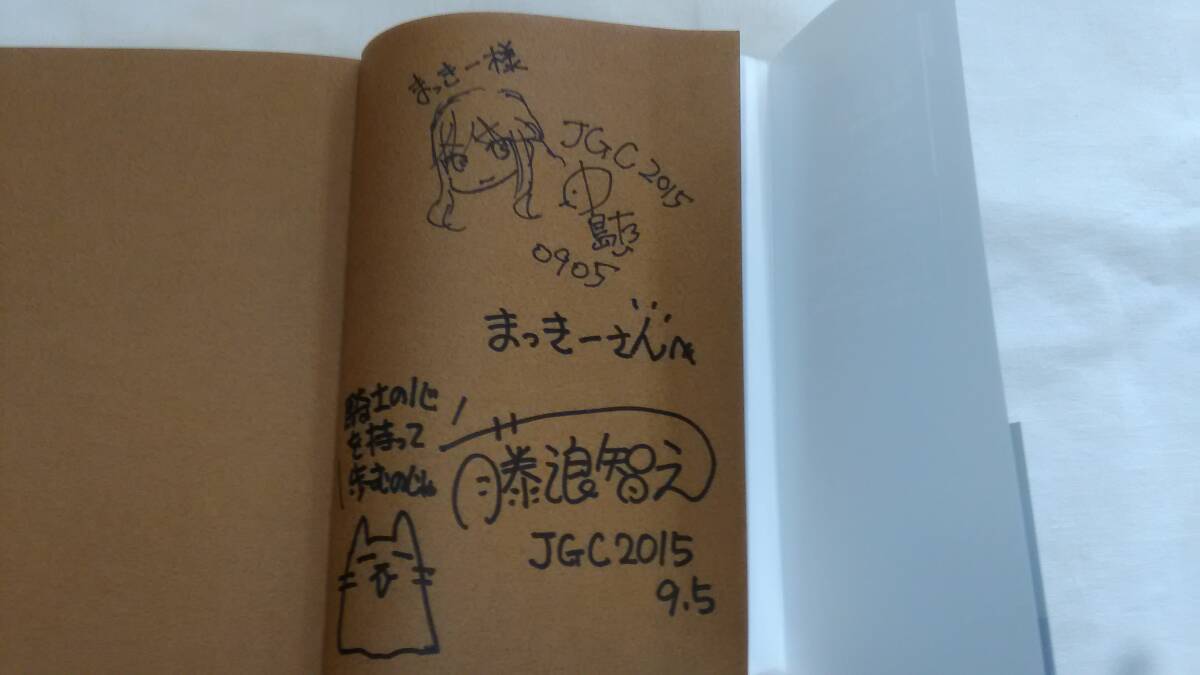 まっきー様
JGC2015
中島
0905
まっきーさんへ
騎士の心
を持って
歩むのじゃ
藤浪智之
JGC2015
9.5